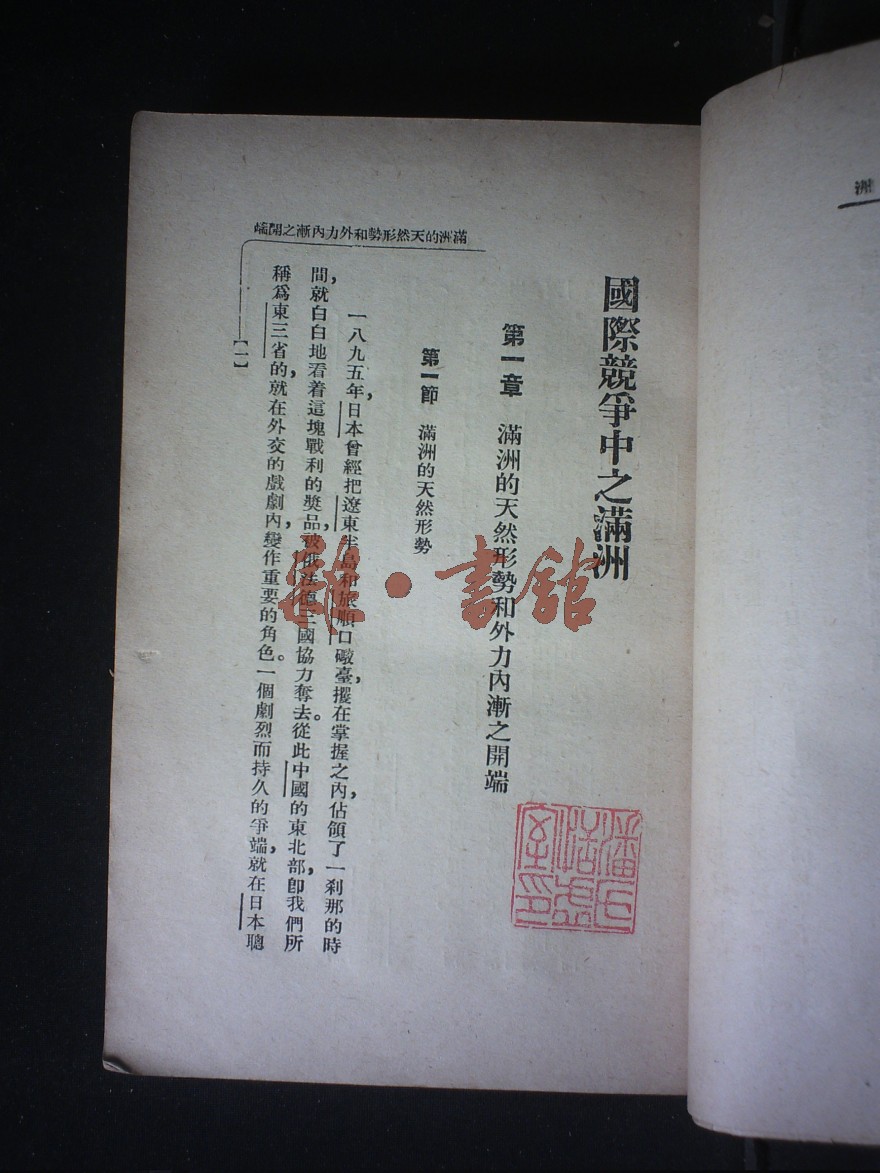 國際競爭中之滿洲
第一章　滿洲的天然形勢和外力內漸之開端
第一節　滿洲的天然形勢
一八九五年，日本曾經把遼東半島和旅順口礮臺，攫在掌握之內，佔領了一剎那的時
間，就白白地看着這塊戰利的獎品，被俄法德三國協力奪去。從此中國的東北部，卽我們所
稱爲東三省的，就在外交的戲劇內，變作重要的角色。一個劇烈而持久的爭端，就在日本聰
滿洲的天然形勢和外力內漸之開端
【一】
雜·書館